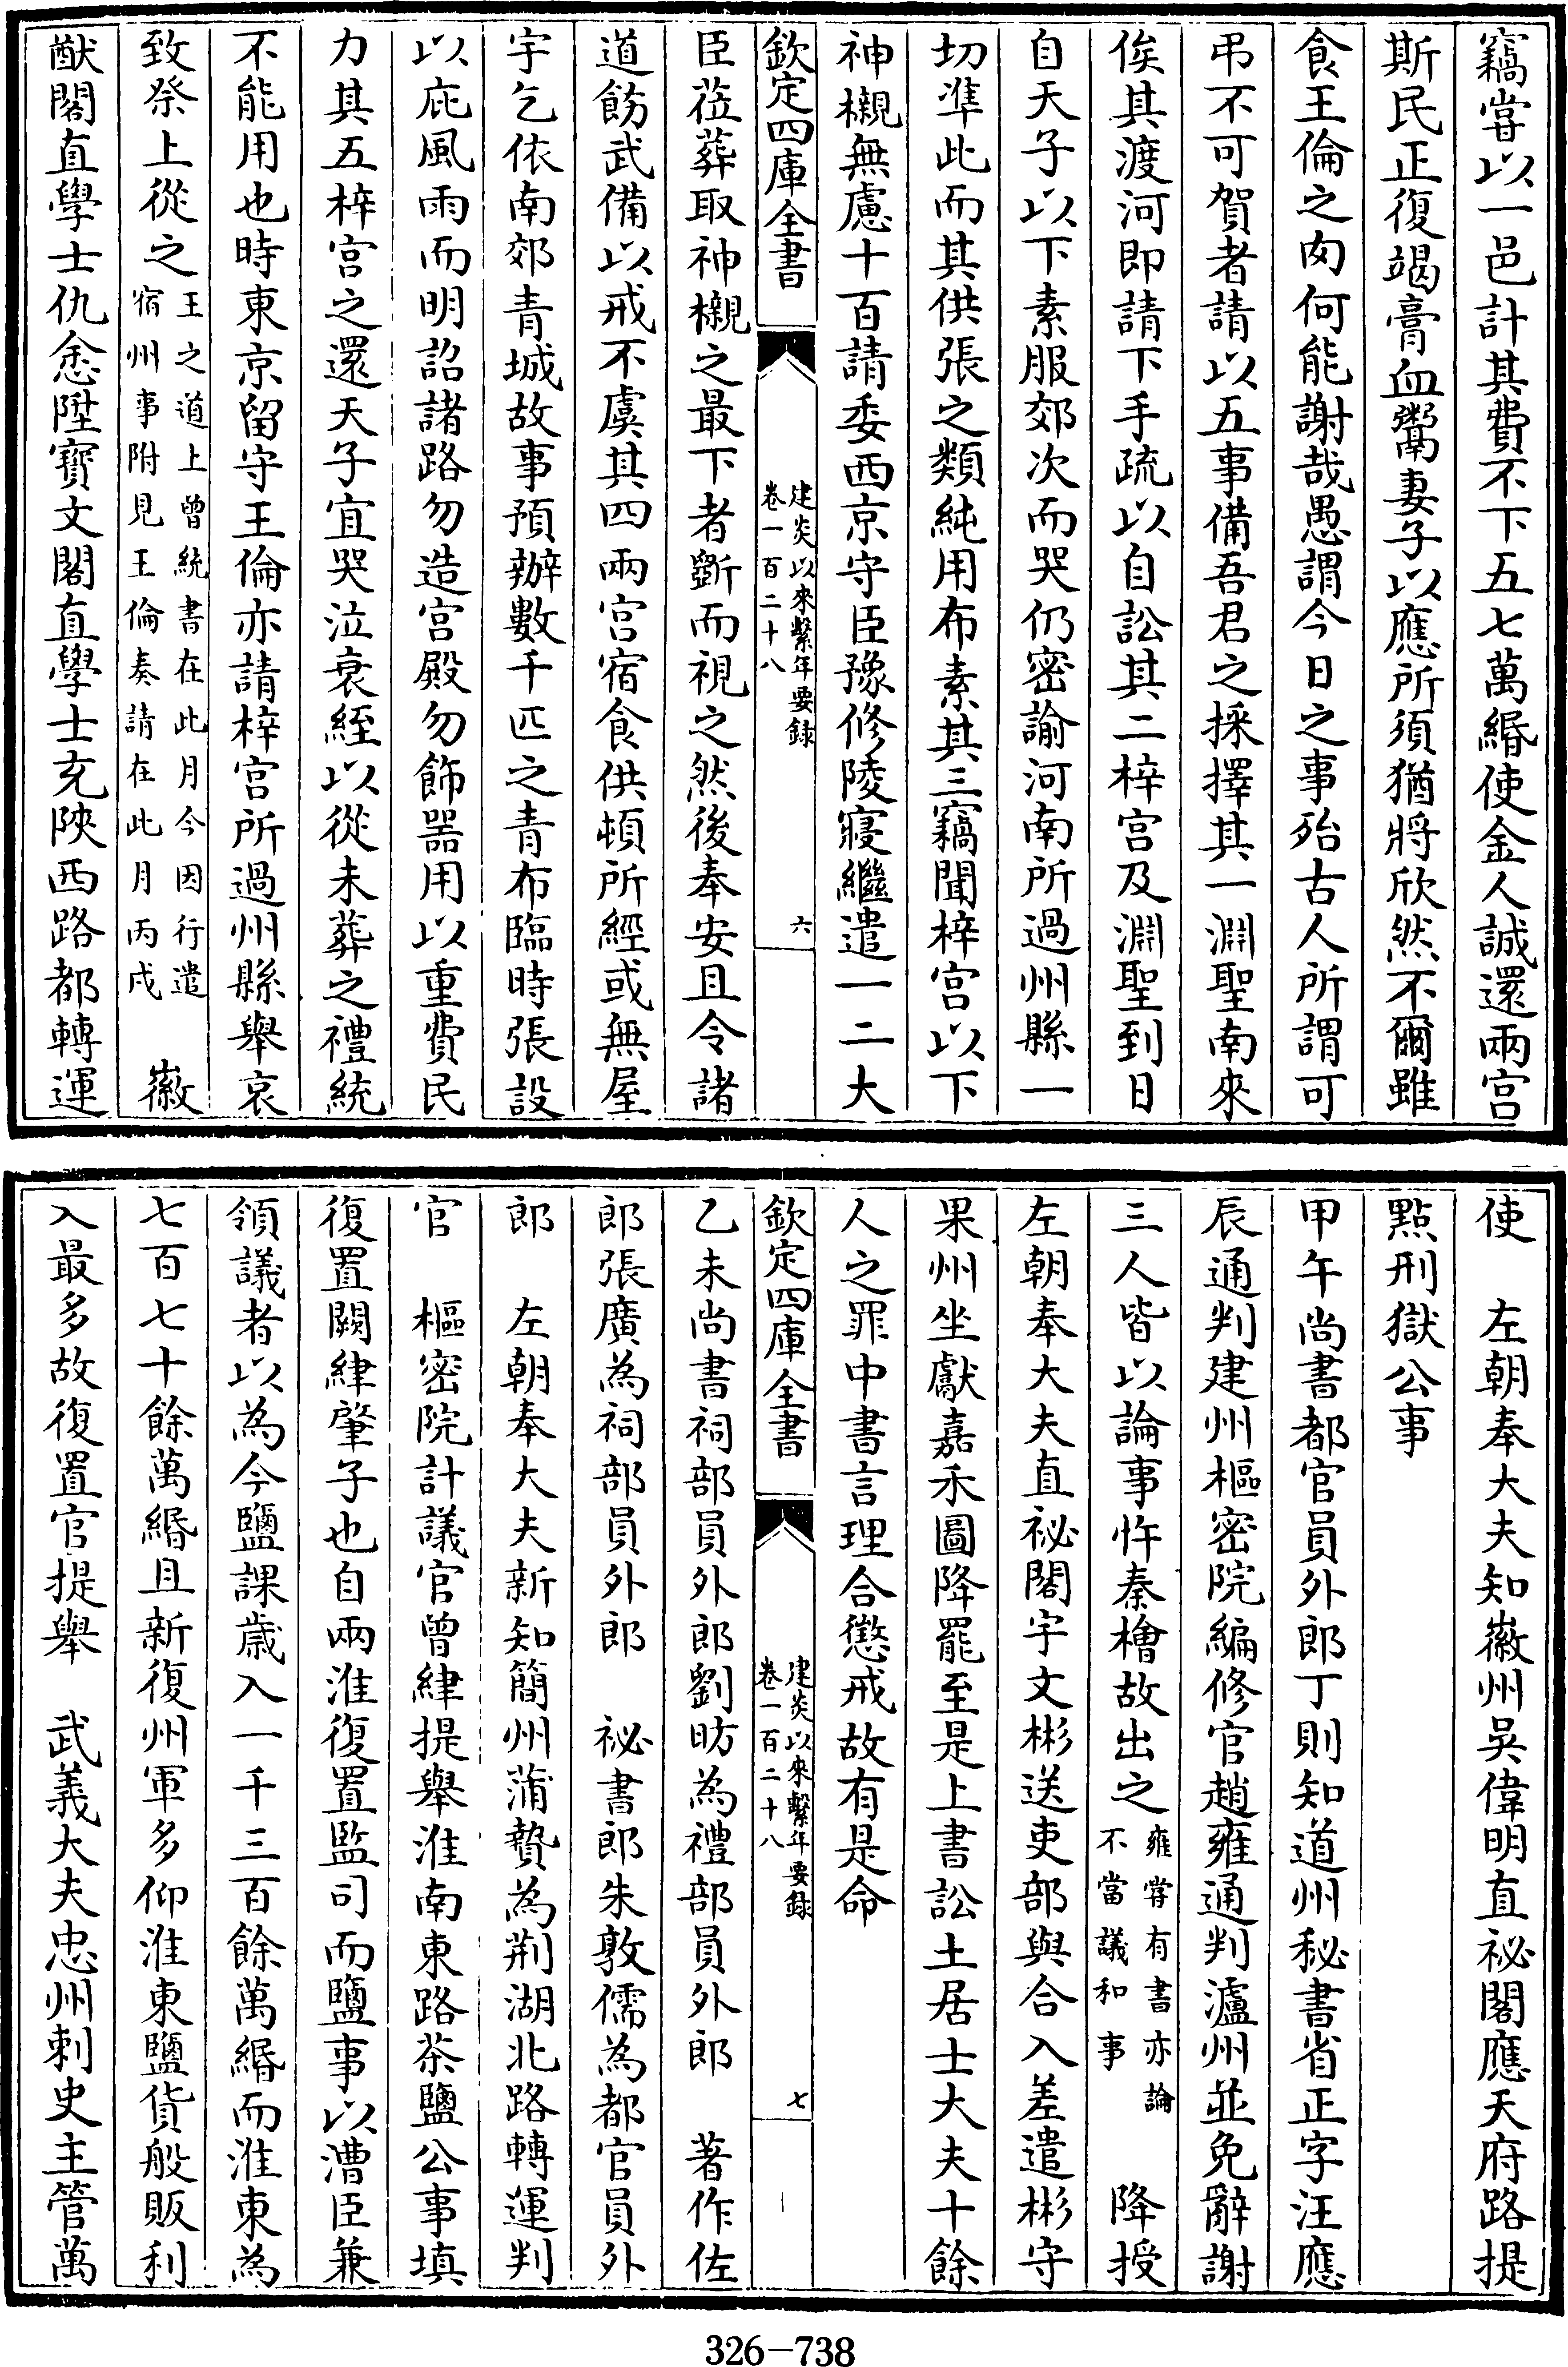 竊甞以一邑計其費不下五七萬緡使金人誠還兩宫
斯民正復竭膏血鬻妻子以應所須猶將欣然不爾雖
食王倫之肉何能謝哉愚謂今日之事殆古人所謂可
弔不可賀者請以五事備吾君之採擇其一淵聖南來
俟其渡河即請下手疏以自訟其二梓宫及淵聖到日
自天子以下素服郊次而哭仍密諭河南所過州縣一
切凖此而其供張之類純用布素其三竊聞梓宫以下
神櫬無慮十百請委西京守臣豫修陵寢繼遣一二大
欽定四庫全書
建炎以來繫年要録
卷一百二十八
六
臣莅葬取神櫬之最下者斵而視之然後奉安且令諸
道飭武備以戒不虞其四兩宫宿食供頓所經或無屋
宇乞依南郊青城故事預辦數千匹之青布臨時張設
以庇風雨而明詔諸路勿造宫殿勿飾器用以重費民
力其五梓宫之還天子宜哭泣衰絰以從未葬之禮統
不能用也時東京留守王倫亦請梓宫所過州縣舉哀
致祭上從之王之道上曾統書在此月今因行遣
宿州事附見王倫奏請在此月丙戍　徽
猷閣直學士仇悆陞寶文閣直學士充陜西路都轉運
使　左朝奉大夫知徽州吳偉明直祕閣應天府路提
點刑獄公事
甲午尚書都官員外郎丁則知道州秘書省正字汪應
辰通判建州樞密院編修官趙雍通判瀘州並免辭謝
三人皆以論事忤秦檜故出之雍甞有書亦論
不當議和事　降授
左朝奉大夫直祕閣宇文彬送吏部與合入差遣彬守
果州坐獻嘉禾圖降罷至是上書訟土居士大夫十餘
人之罪中書言理合懲戒故有是命
欽定四庫全書
建炎以來繫年要録
卷一百二十八
七
乙未尚書祠部員外郎劉昉為禮部員外郎　著作佐
郎張廣為祠部員外郎　祕書郎朱敦儒為都官員外
郎　左朝奉大夫新知簡州蒲贄為荆湖北路轉運判
官　樞密院計議官曾緯提舉淮南東路茶鹽公事填
復置闕緯肇子也自兩淮復置監司而鹽事以漕臣兼
領議者以為今鹽課歲入一千三百餘萬緡而淮東為
七百七十餘萬緡且新復州軍多仰淮東鹽貨般販利
入最多故復置官提舉　武義大夫忠州刺史主管萬
326-738